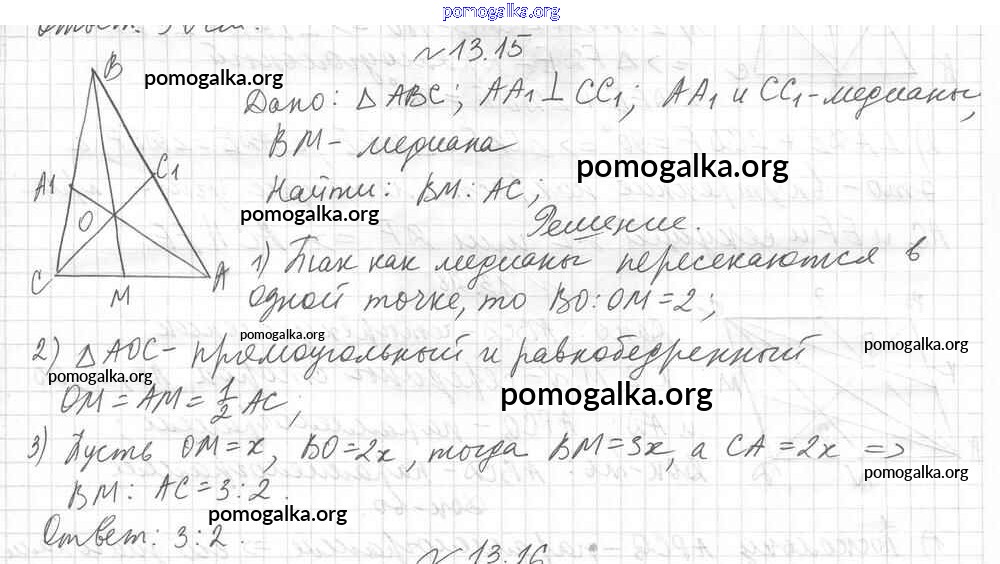 pomogalka.org
Ответ: 30 см.
№13.15
B
pomogalka.org
Дано: △ABC; AA1⊥CC1; AA1 и CC1-медианы,
BM- медиана
C1
pomogalka.org
A1
Найти: BM:AC;
pomogalka.org
O
Решение.
C
M
A
1) Так как медианы пересекаются в
одной точке, то BO:OM=2;
pomogalka.org
2) △AOC- прямоугольный и равнобедренный
pomogalka.org
pomogalka.org
OM=AM=1/2 AC;
pomogalka.org
3) Пусть OM=x, BO=2x, тогда BM=3x, а CA=2x =>
pomogalka.org
BM: AC=3:2.
pomogalka.org
Ответ: 3:2.
№13.16